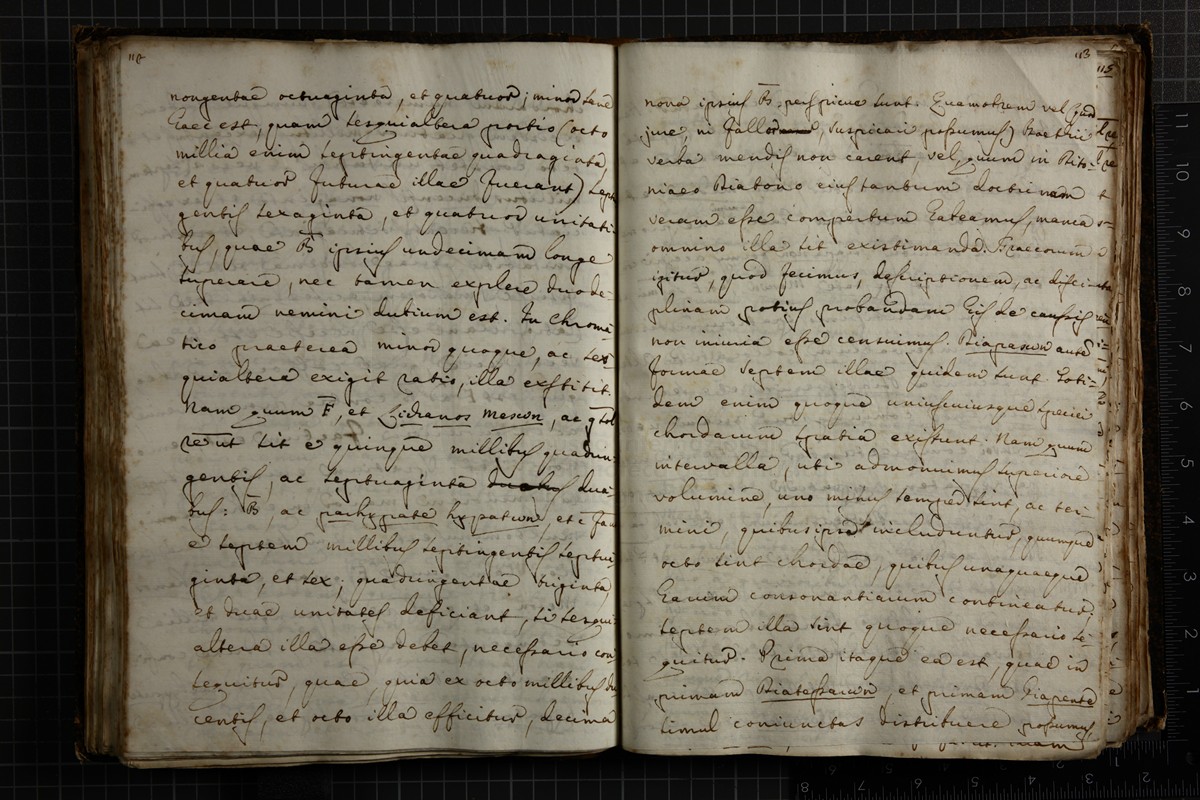 112
nongentae octuaginta, et quatuor; minor sane
haec est, quam sesquialtera portio (octo
millia enim septingentae quadraginta,
et quatuor futurae illae fuerant) septin
gentis sexaginta, et quatuor unitati
bus, quae B ipsius undecimam longe
superare, nec tamen explere duode-
cimam nemini dubium est. In chroma
tico praeterea minor quoque, ac ses
quialtera exigit ratio, illa exstitit.
Nam quum F, et Lichanos meson, ac
sit e quinque millibus quadrin
gentis, ac septuaginta dua
bus: B, ac parhypate hypaton, et
e septem millibus septingentis septua
ginta, et sex; quadringentae triginta,
et duae unitates deficiant, si sesqui
altera illa esse debet, necessario con
sequitur, quae, quia ex octo millibus du
centis, et octo illa efficitur, decima
113
nona ipsius B perspicue sunt. Quamobrem vel quod
jure ni fallor, suspicari possumus) Boethii
verba mendis non carent, vel, quum in
Diatono eius tantum doctrinam
veram esse compertum habeamus, manca
omnino illa sit existimanda. Graecorum
igitur, quod fecimus, descriptionem, ac disci
plinam potius probandam his de caussis
non iniuria esse censuimus. Diapason autem
formae septem illae quidem sunt. Toti-
dem enim quoque uniuscuiusque speciei
chordarum spatia existunt. Nam quum
intervalla, uti admonuimus superiore
volumine, uno minus semper sint, ac ter
mini, quibus ipsa includuntur, quumque
octo sint chordae, quibus unaquaeque
harum consonantiarum continentur,
septem illa sint quoque necessario se-
quitur. Prima itaque ea est, quae in
primam Diatessaron, et primam Diapente
simul coniunctas distribuere possumus
115